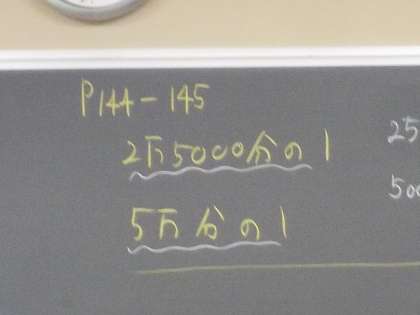 P144-145
2万5000分の1
25
5万分の1
500